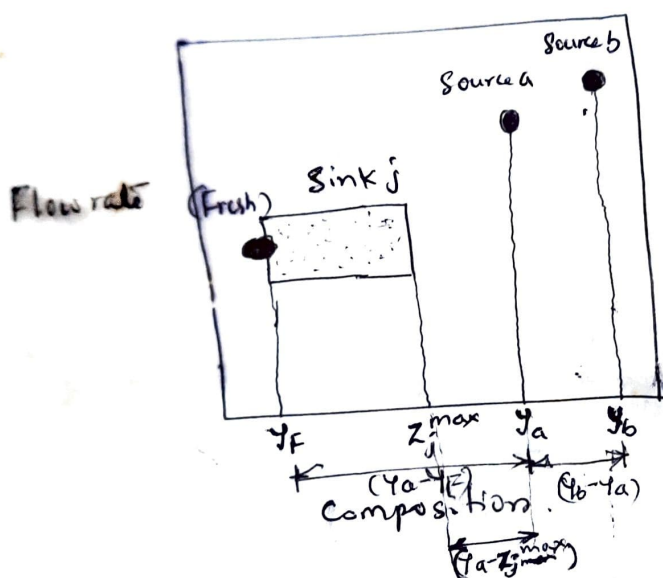 Source b
Source a
Sink j
Flow rate (Fresh)
y_F z_j^max y_a y_b
(y_a-y_F) (y_b-y_a)
Composition.
(y_a-z_j^max)